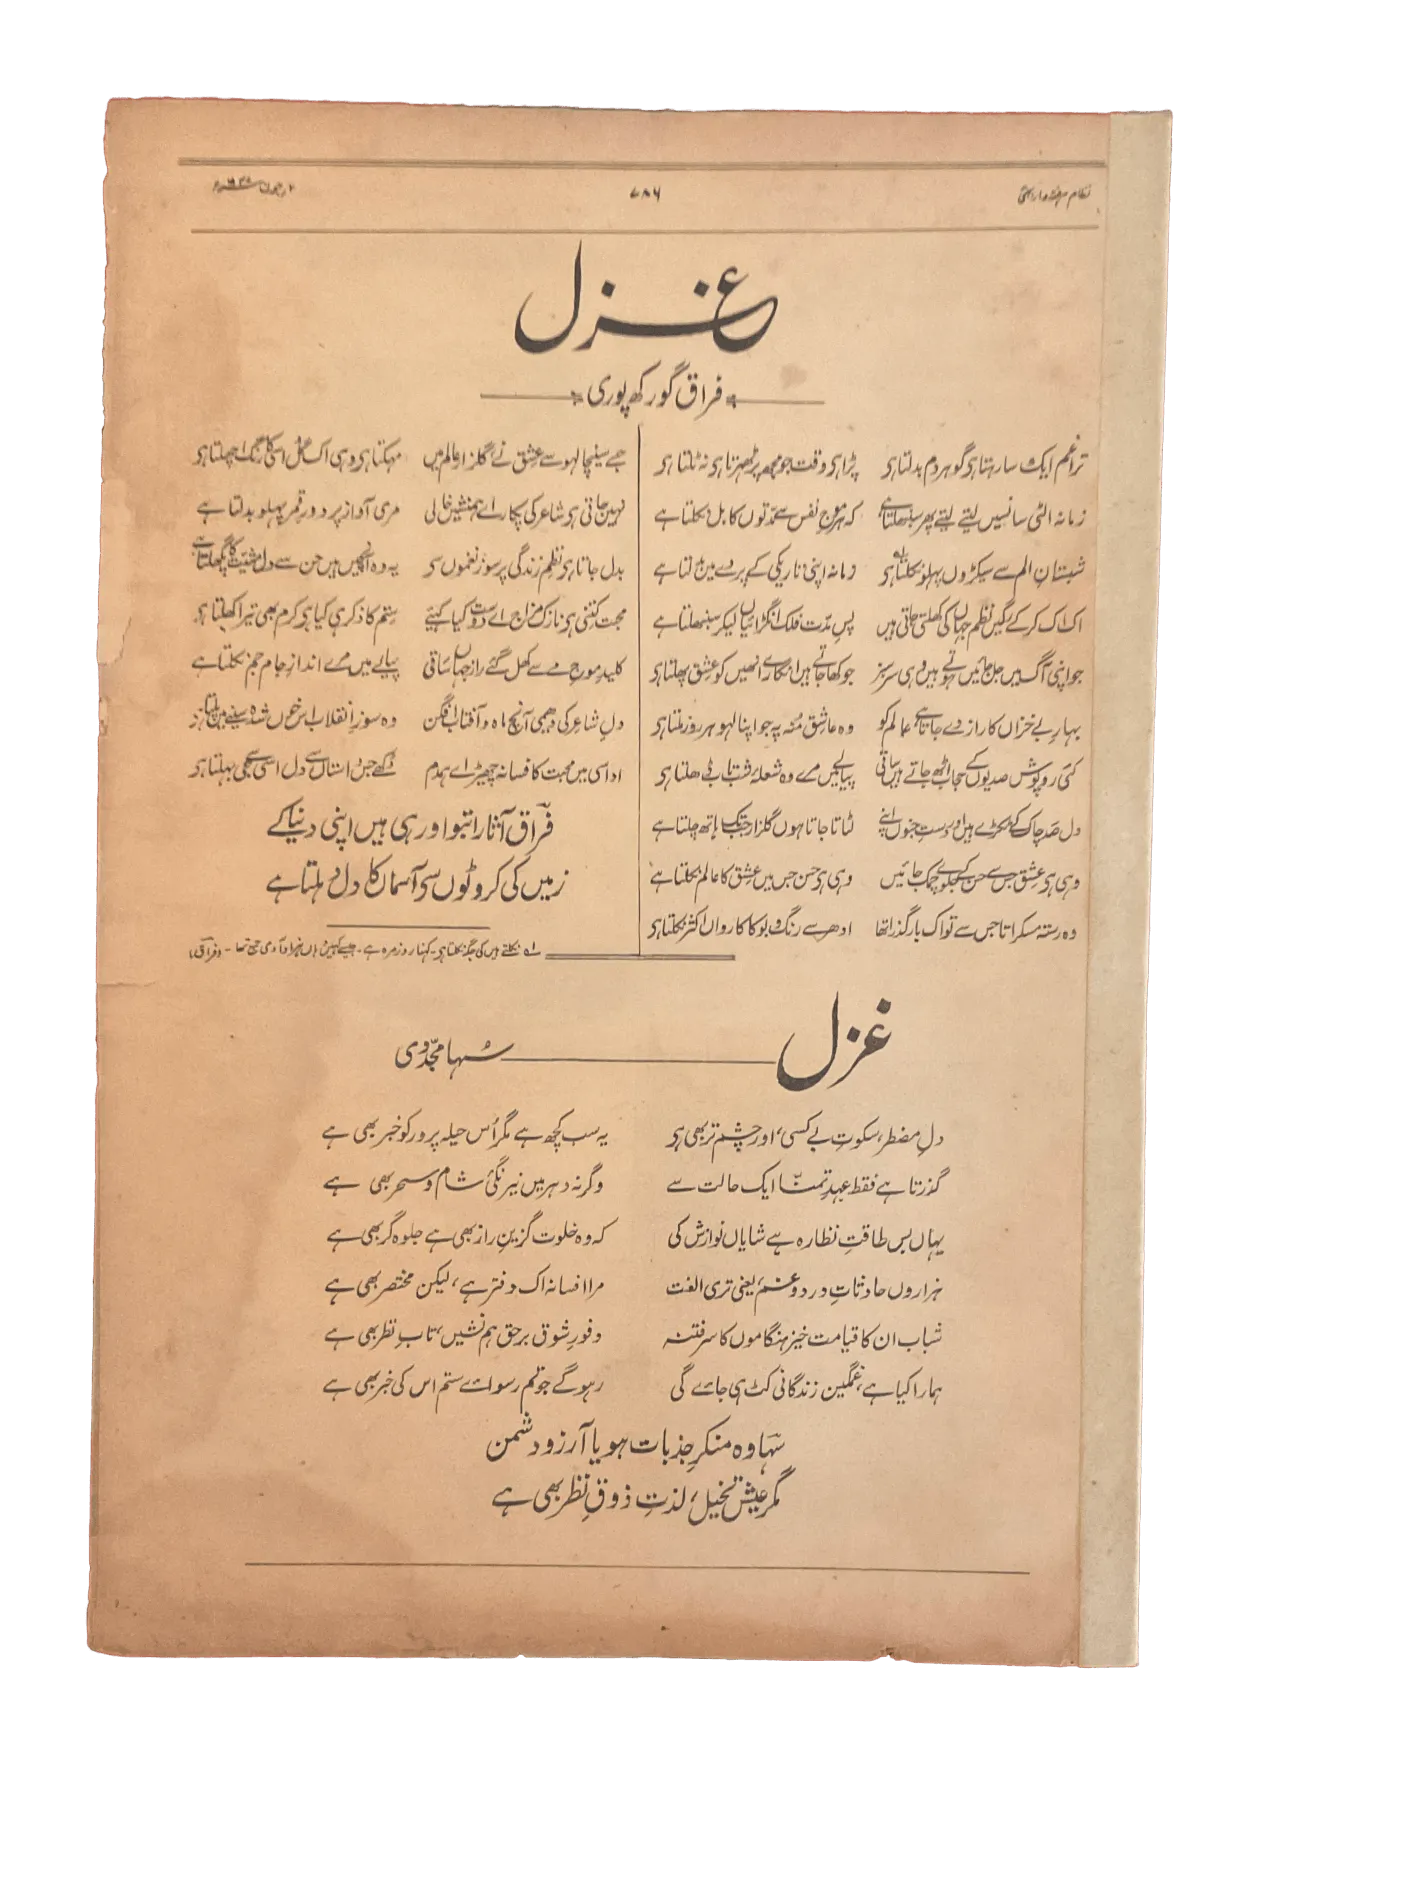 نظام ہفتہ وار بمبئی
۷۸۶
۲ر جون
غزل
فراق گورکھپوری
ترا غم ایک سا رہتا ہی گو ہر دم بدلتا ہی
پڑا ہی وقت جو مجھ پر ٹھہرتا ہی نہ ٹلتا ہی
زمانہ الٹی سانسیں لیتے لیتے پھر سنبھلتا ہے
کہ ہر موجِ نفس سے مدّتوں کا بل نکلتا ہے
شبستانِ الم سے سیکڑوں پہلو نکلتا ہی
زمانہ اپنی تاریکی کے پردے میں بدلتا ہے
اک اک کر کے گہیں نظمِ جہاں کی کھلتی جاتی ہیں
پسِ مدّت فلک انگڑائیاں لیکر سنبھلتا ہے
جو اپنی آگ میں جل جل کے ہوتے ہیں وہی سرسبز
جو کھا جاتے ہیں انگارے انھیں کو عشق پھلتا ہی
بہارِ بے خزاں کا راز دے جاتا ہے عالم کو
وہ عاشق منہ پہ جو اپنا لہو ہر روز ملتا ہی
کئی روپوش صدیوں کے حجاب اٹھ جاتے ہیں ساقی
پیالے میں مے وہ شعلۂ شب تاب ڈھلتا ہی
دل صد چاک کے ٹکڑے ہیں اور دستِ جنوں اپنے
لٹاتا جاتا ہوں گلزار جبتک ہاتھ چلتا ہے
وہی ہی عشق جس سے حسن کے جلوے چمک جائیں
وہی ہی حسن جس میں عشق کا عالم نکلتا ہے
وہ رستہ مسکراتا جس سے تو اک بار گذرا تھا
ادھر سے رنگ و بو کا کارواں اکثر نکلتا ہی
جسے سینچا لہو سے عشق نے گلزارِ عالم میں
مہکتا ہی وہی اک گل اسی کا رنگ اچھلتا ہی
نہیں جاتی ہی شاعر کی پکار اے ہمنشیں خالی
مری آواز پر دورِ قمر پہلو بدلتا ہے
بدل جاتا ہی نظمِ زندگی پر سوز نغموں سی
یہ وہ آنچیں ہیں جن سے دل مشیّت کا پگھلتا ہے
محبت کتنی ہی نازک مزاج اے دوست کیا کہیئے
ستم کا ذکر ہی کیا ہی کرم بھی تیرا کھلتا ہی
کلیدِ موجِ مے سے کھل گئے رازِ جہاں ساقی
پیالے میں مے اندازِ جامِ جم نکلتا ہے
دلِ شاعر کی دھیمی آنچ ماہ و آفتاب افگن
وہ سوزِ انقلاب اس خوں شدہ سینے میں پلتا ہی
اداسی میں محبت کا فسانہ چھیڑ اے ہمدم
دکھے جس داستاں سے دل اسی سے جی بہلتا ہی
فراق آثار اتبو اور ہی ہیں اپنی دنیا کے
زمیں کی کروٹوں سی آسماں کا دل دہلتا ہے
لہ نکلتے ہیں کی جگہ نکلتا ہی۔ کہنا روزمرہ ہے۔ جیسے کہیں وہاں ہزار ہا آدمی تھا۔ (فراق)
غزل
سُہا مجدّدی
دلِ مضطر، سکوتِ بے کسی، اور چشمِ تر بھی ہی
یہ سب کچھ ہے مگر اُس حیلہ پرور کو خبر بھی ہے
گذرتا ہے فقط عہدِ تمنّا ایک حالت سے
وگرنہ دہر میں نیرنگئ شام و سحر بھی ہے
یہاں بس طاقتِ نظارہ ہے شایاں نوازش کی
کہ وہ خلوت گزینِ راز بھی ہے جلوہ گر بھی ہے
ہزاروں حادثاتِ درد و غم، یعنی تری الفت
مرا افسانہ اک دفتر ہے، لیکن مختصر بھی ہے
شباب ان کا قیامت خیز ہنگاموں کا سرفتنہ
وفورِ شوق برحق ہم نشیں، تابِ نظر بھی ہے
ہمارا کیا ہے، غمگیں زندگانی کٹ ہی جائے گی
رہو گے جو تم رسوائے ستم اس کی خبر بھی ہے
سہا وہ منکرِ جذبات ہو یا آرزو دشمن
مگر عیشِ تخیل، لذتِ ذوقِ نظر بھی ہے